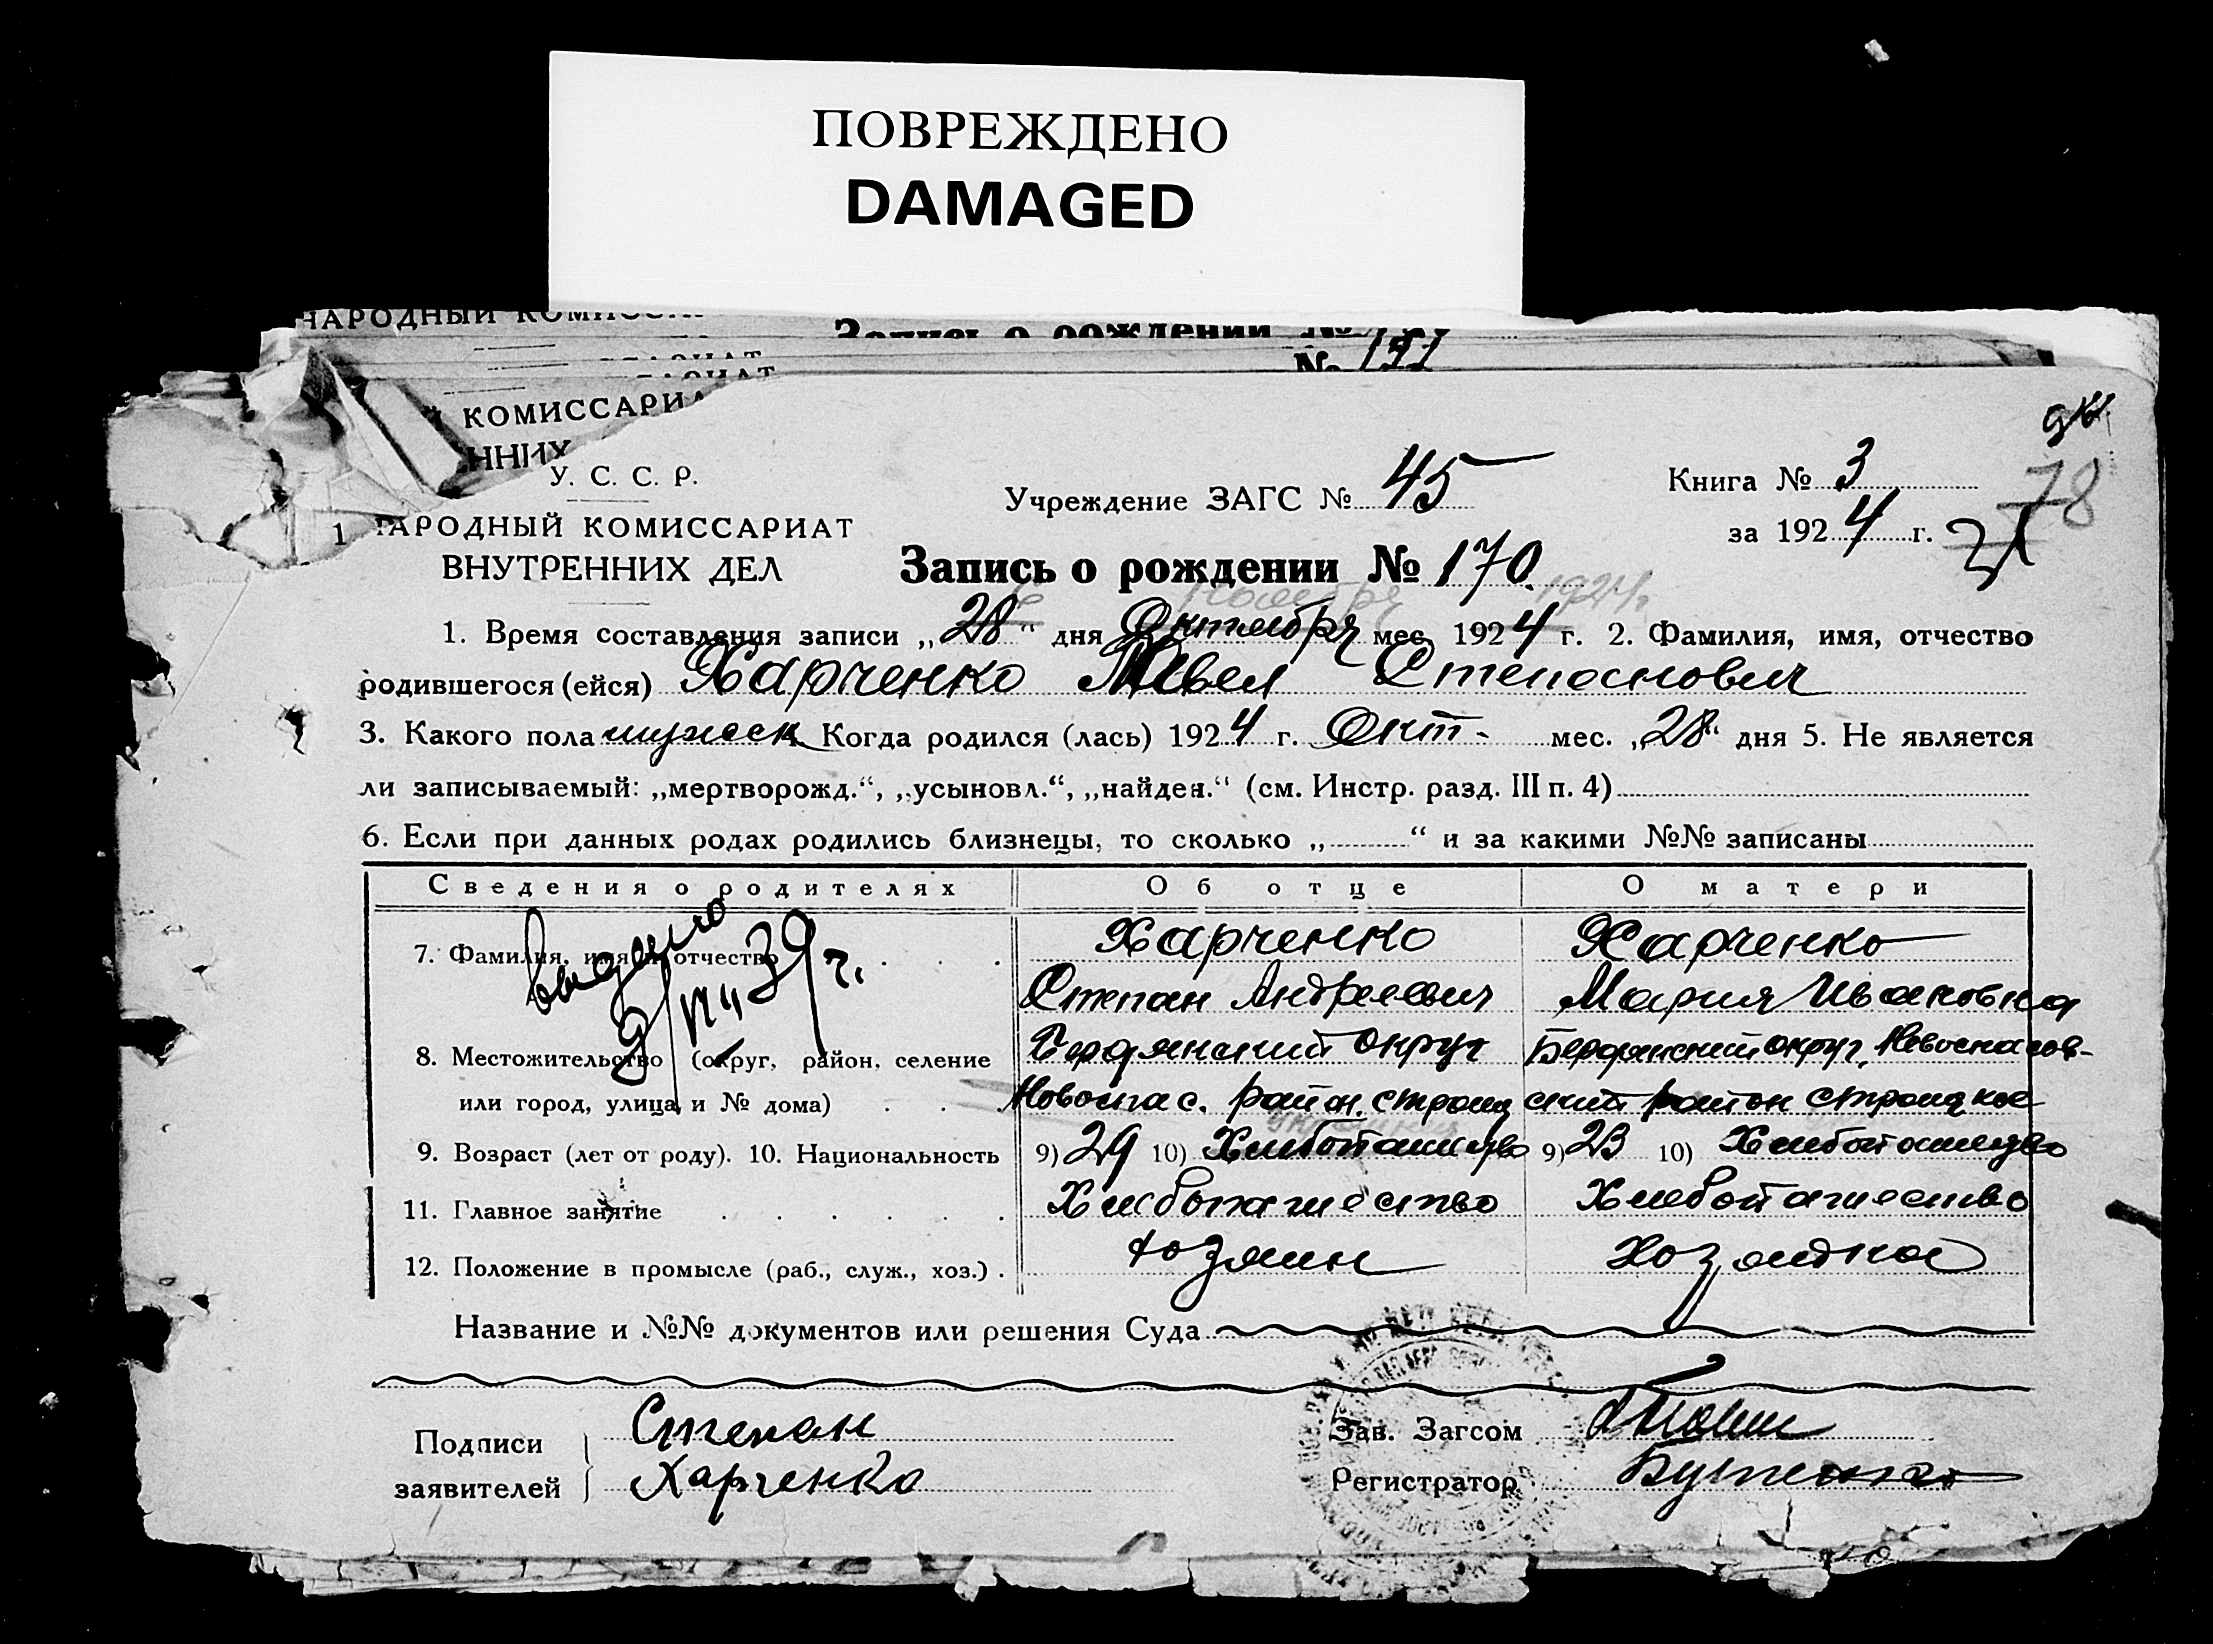 ПОВРЕЖДЕНО
DAMAGED
НАРОДНЫЙ
Запись о рождении №
№ 171
КОМИССАРИА
ННИХ
У. С. С. Р.
НАРОДНЫЙ КОМИССАРИАТ
ВНУТРЕННИХ ДЕЛ
Учреждение ЗАГС № 45
Книга № 3
78
за 1924 г.
Запись о рождении № 170
Ноября 1924 г.
1. Время составления записи „28“ дня Октября мес. 1924 г. 2. Фамилия, имя, отчество
родившегося (ейся) Харченко Павел Степанович
3. Какого пола мужск Когда родился (лась) 1924 г. Окт- мес. „28“ дня 5. Не является
ли записываемый: „мертворожд.“, „усыновл.“, „найден.“ (см. Инстр. разд. III п. 4)
6. Если при данных родах родились близнецы, то сколько „ “ и за какими №№ записаны
Сведения о родителях Об отце О матери
7. Фамилия, имя и отчество Харченко Харченко
Степан Андреевич Мария Ивановна
выдано 9/IV 39 г.
8. Местожительство (округ, район, селение Бердянский округ Бердянский округ, Новоспасов-
или город, улица и № дома) Новоспас. район. строиц ский район строицкое
9. Возраст (лет от роду). 10. Национальность 9) 29 10) Хлебопашество 9) 23 10) Хлебопашество
11. Главное занятие Хлебопашество Хлебопашество
12. Положение в промысле (раб., служ., хоз.) хозяин хозяйка
Название и №№ документов или решения Суда
Подписи заявителей Степан Харченко
Зав. Загсом
Регистратор Бутенко